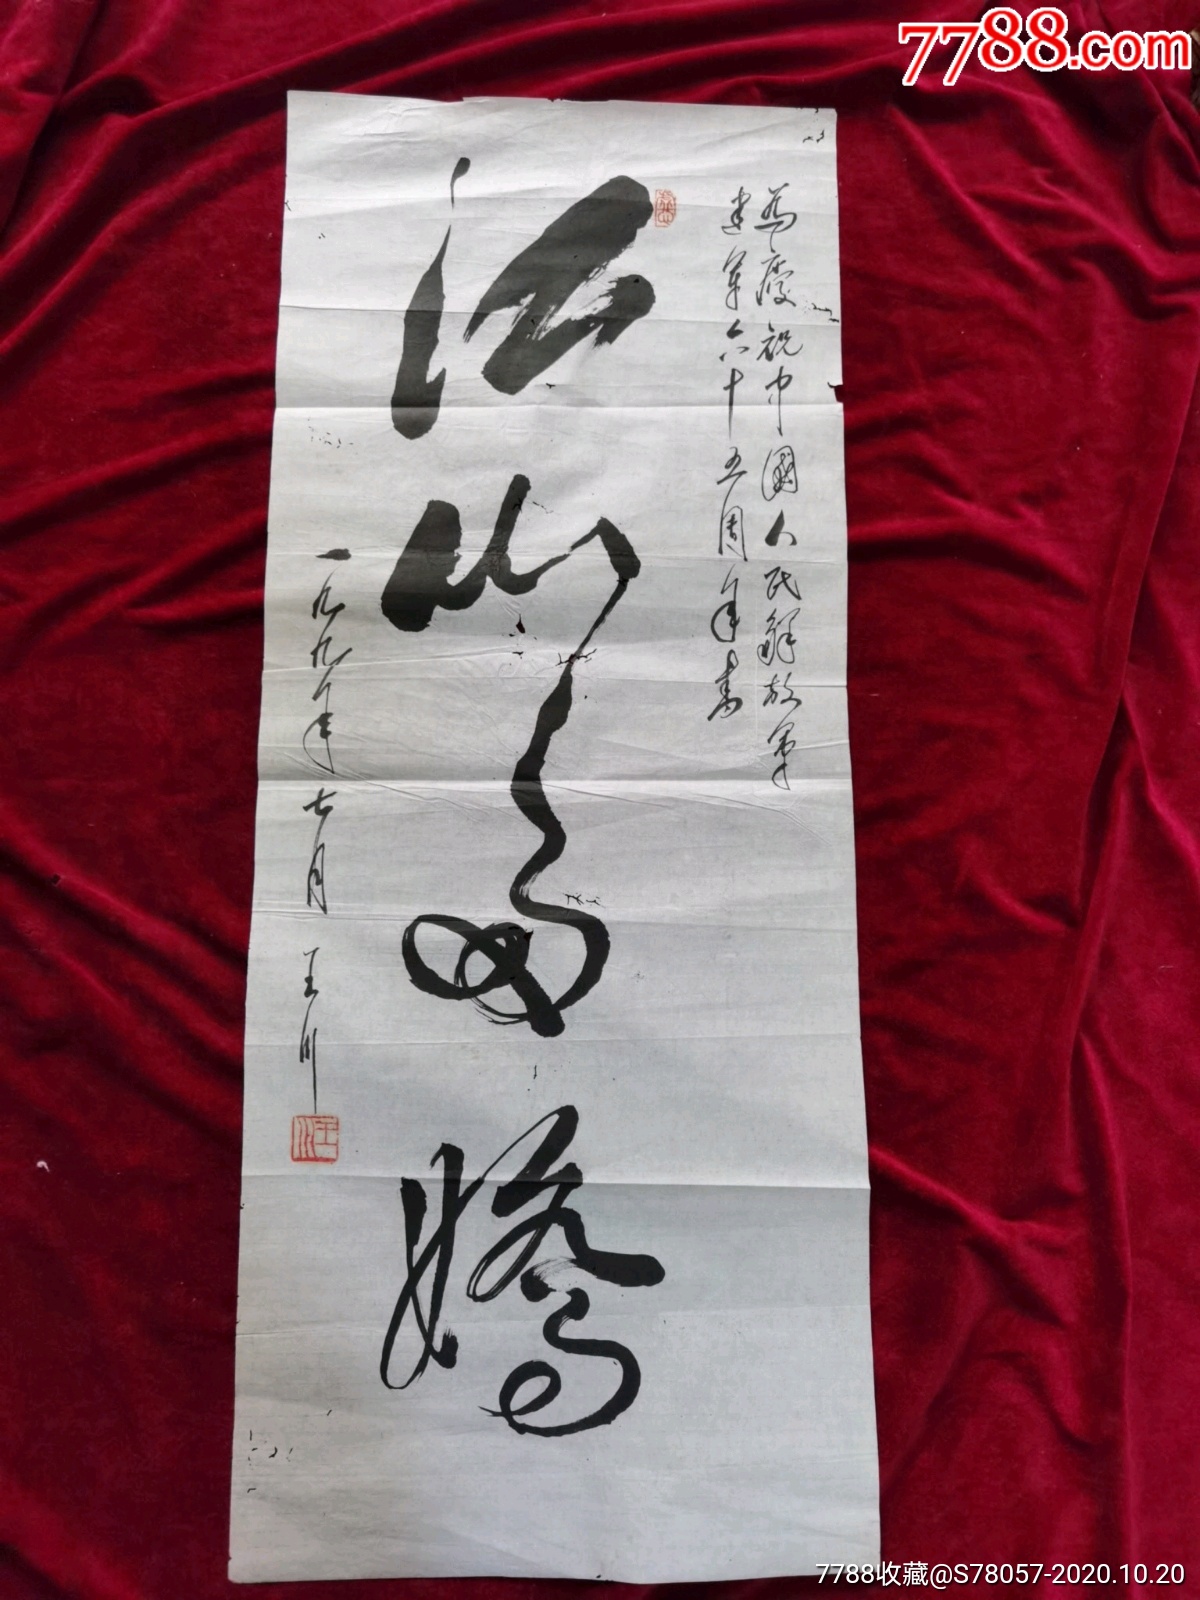 7788.com
為慶祝中國人民解放軍
建軍六十五周年書
江山多嬌
一九九年七月 王川
王川
7788收藏@S78057-2020.10.20